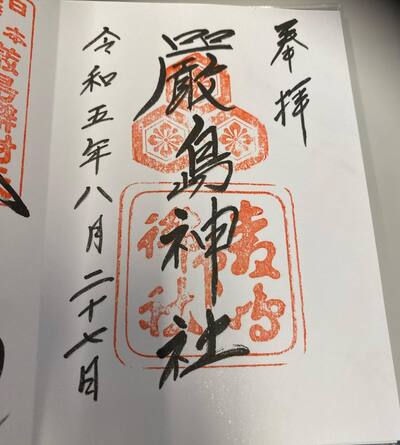 奉拝
嚴島神社
令和五年八月二十七日